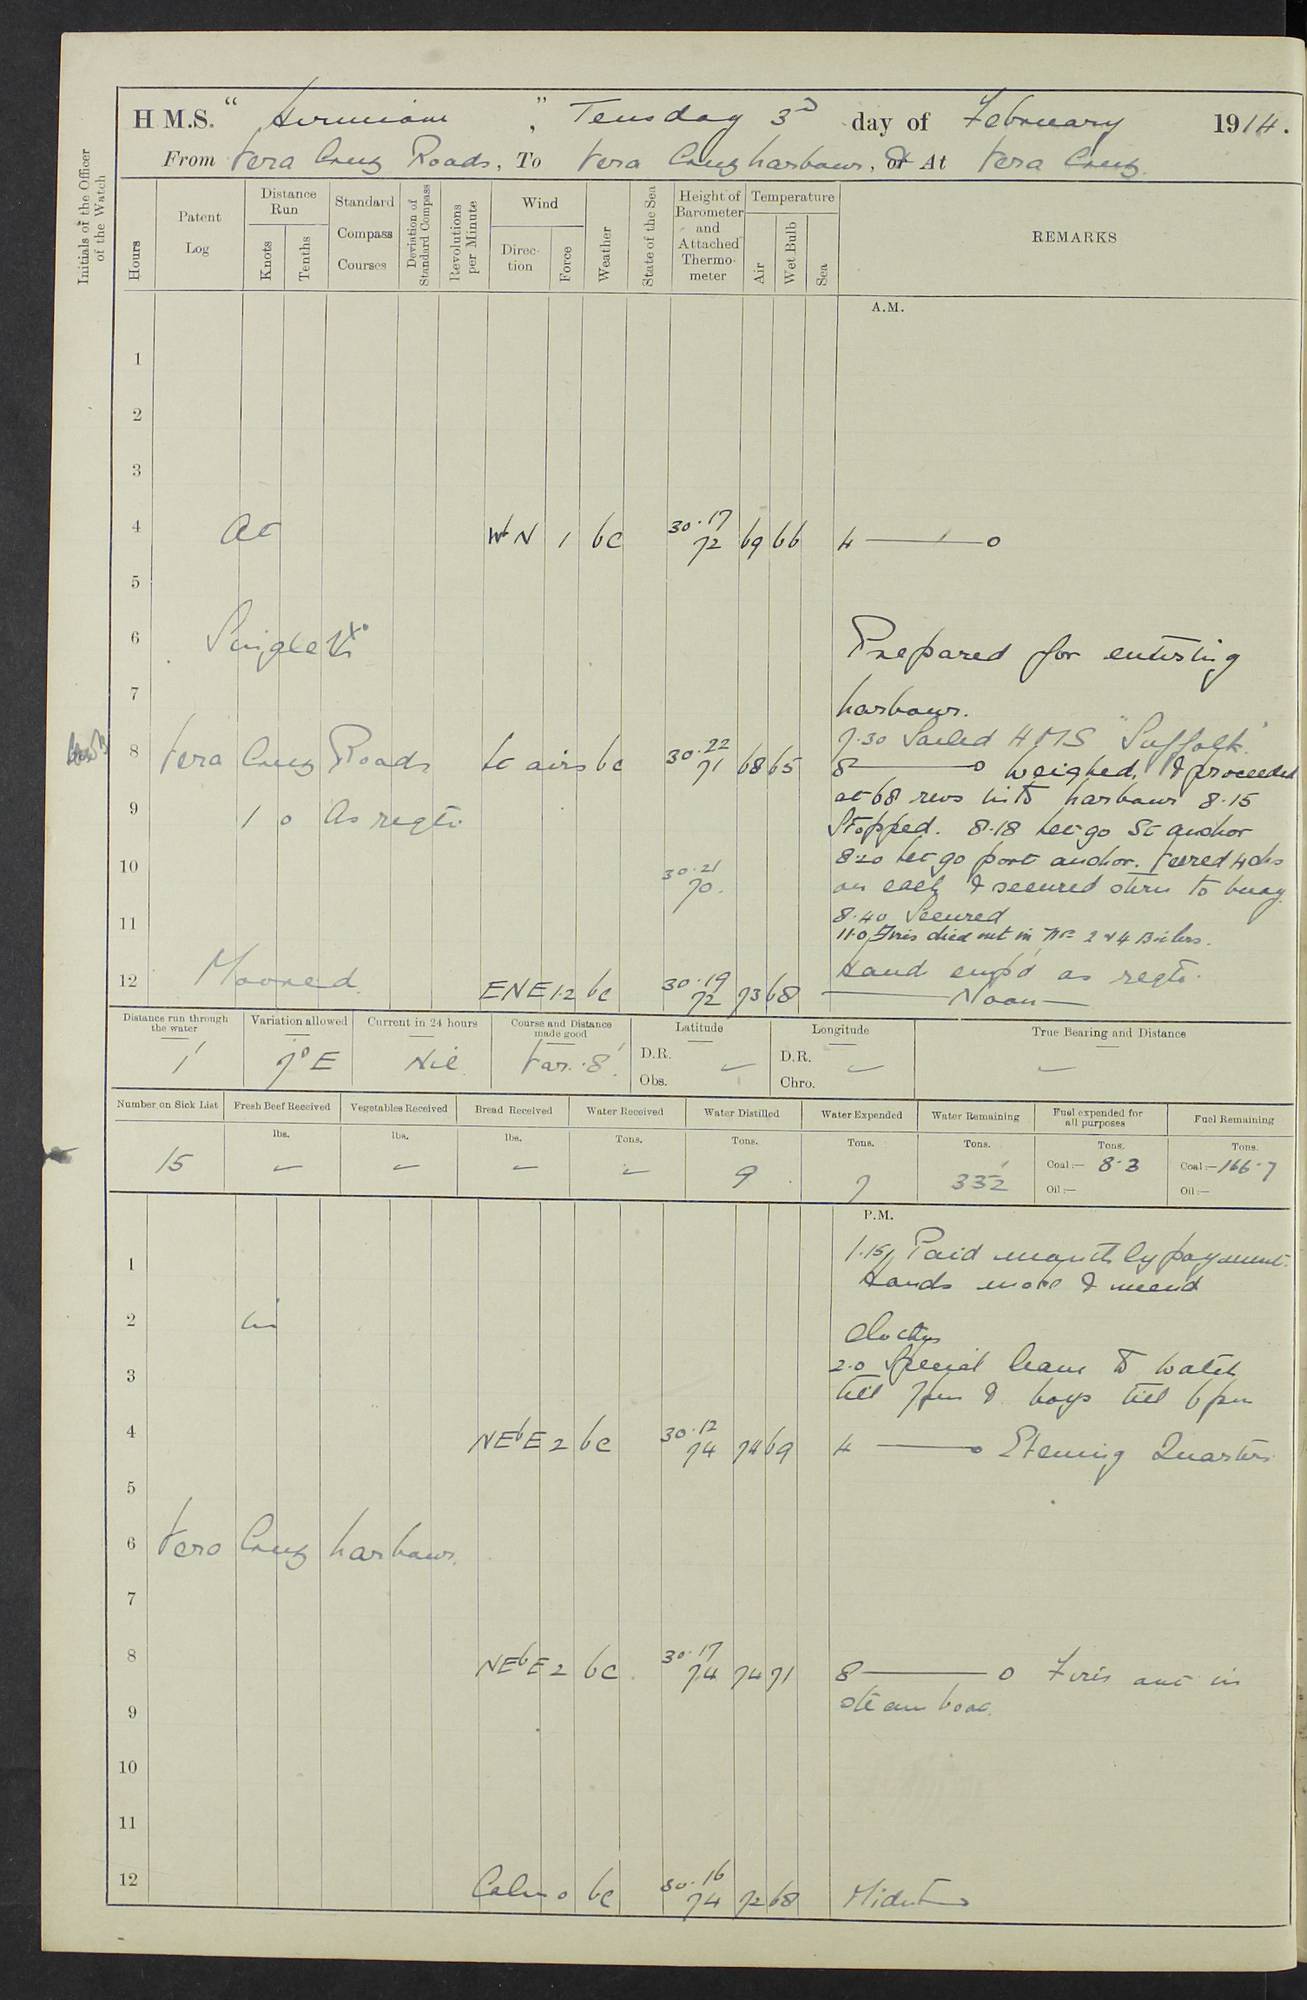 H.M.S. " Hermione ", Tuesday 3rd day of February 1914.
From Vera Cruz Roads, To Vera Cruz harbour, or At Vera Cruz.
Initials of the Officer of the Watch
Hours
Patent Log
Distance Run
Knots
Tenths
Standard Compass Courses
Deviation of Standard Compass
Revolutions per Minute
Wind
Direction
Force
Weather
State of the Sea
Height of Barometer and Attached Thermometer
Temperature
Air
Wet Bulb
Sea
REMARKS
A.M.
1
2
3
4 At WbN 1 bc 30.17 72 69 66 4 ——— o
5
6 Single Prepared for entering
7 harbour.
7.30 Sailed HMS "Suffolk"
8 Vera Cruz Roads Lt airs bc 30.22 71 68 65 8 ——— o Weighed, & proceeded
at 68 revs into harbour 8.15
9 1 0 As reqte Stopped. 8.18 let go St anchor
8.20 let go port anchor. Veered 4 chs
10 30.21 70. on each & secured stern to buoy
8.40 Secured
11 11.0 Fires died out in Nos 2 & 4 Boilers.
Hands emp'd as reqte.
12 Moored ENE 1.2 bc 30.19 72 73 68 ——— Noon ———
Distance run through the water
Variation allowed
Current in 24 hours
Course and Distance made good
Latitude
Longitude
True Bearing and Distance
1' 7°E Nil Var. 8' D.R. Obs. — D.R. Chro. — —
Number on Sick List
Fresh Beef Received
Vegetables Received
Bread Received
Water Received
Water Distilled
Water Expended
Water Remaining
Fuel expended for all purposes
Fuel Remaining
lbs. lbs. lbs. Tons. Tons. Tons. Tons. Tons. Tons.
15 — — — — 9 7 332 Coal:— 8.3 Coal:— 166.7
Oil:— Oil:—
P.M.
1.15 Paid monthly payment.
1 Hands make & mend
2 in clothes
3 2.0 Special leave to watch
till 7pm & boys till 6pm
4 NEbE 2 bc 30.12 74 74 69 4 ——— o Evening Quarters
5
6 Vera Cruz harbour.
7
8 NEbE 2 bc 30.17 74 74 71 8 ——— o Fires out in
9 steam boat.
10
11
12 Calm 0 bc 30.16 74 72 68 Midnt